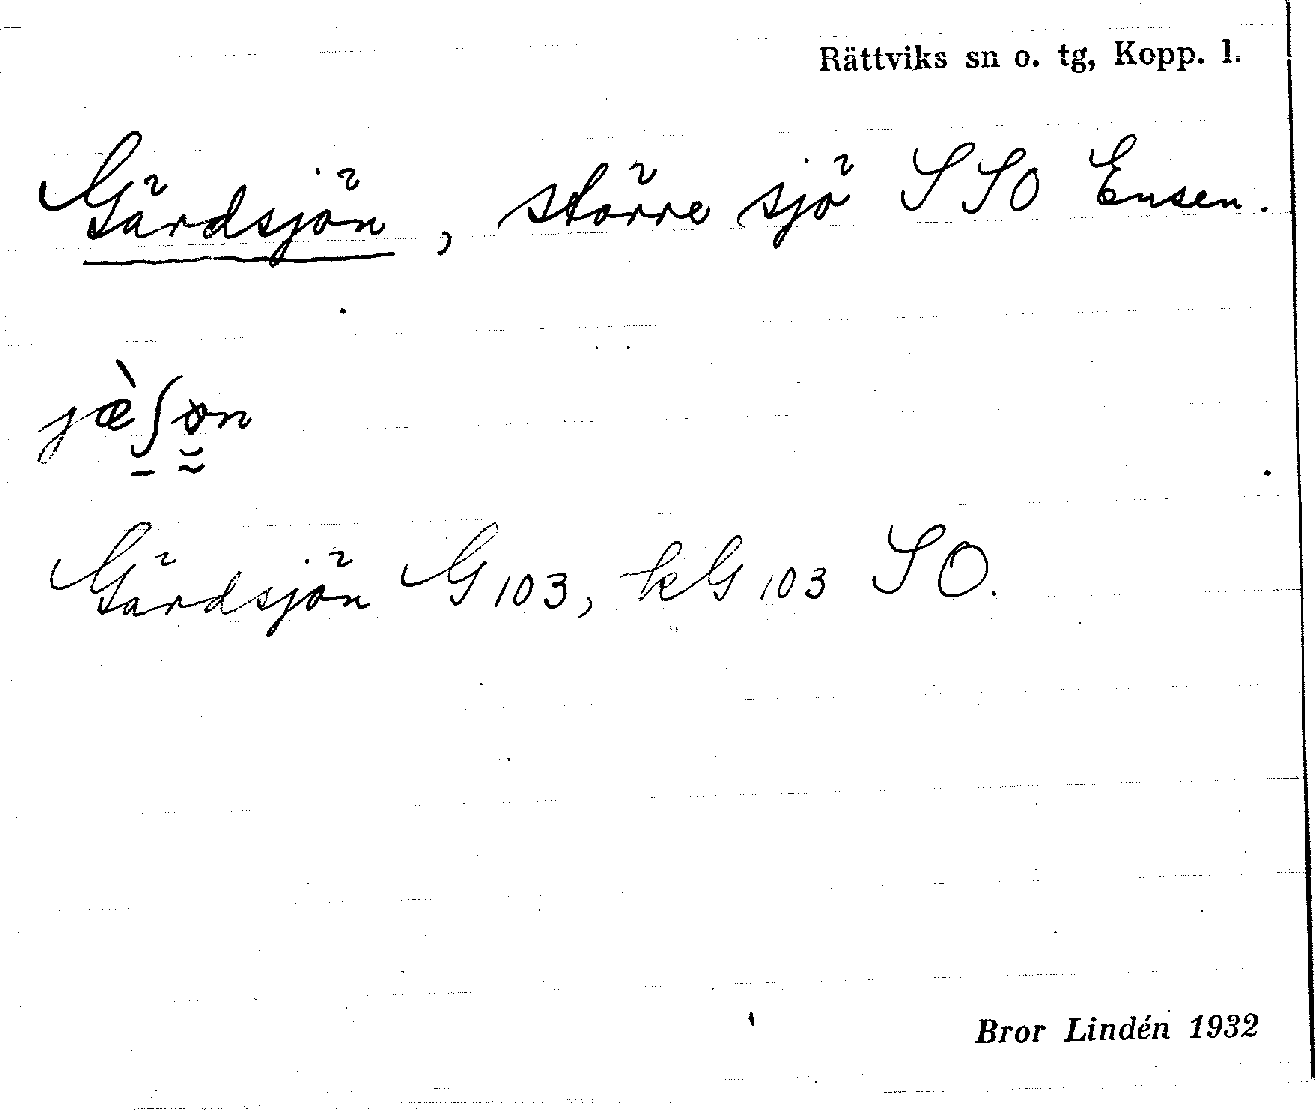 Rättviks sn o. tg, Kopp. l.
Gärdsjön, större sjö SSO Ensen.
Gärdsjön G 103, kG 103 SO.
Bror Lindén 1932